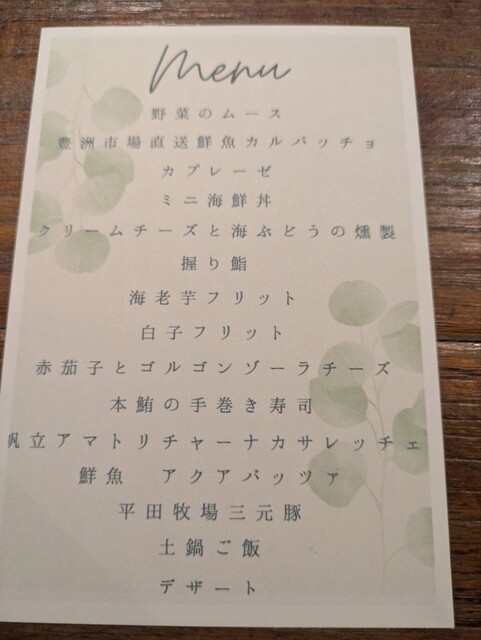 Menu
野菜のムース
豊洲市場直送鮮魚カルパッチョ
カプレーゼ
ミニ海鮮丼
クリームチーズと海ぶどうの燻製
握り鮨
海老芋フリット
白子フリット
赤茄子とゴルゴンゾーラチーズ
本鮪の手巻き寿司
帆立アマトリチャーナカサレッチェ
鮮魚　アクアパッツァ
平田牧場三元豚
土鍋ご飯
デザート